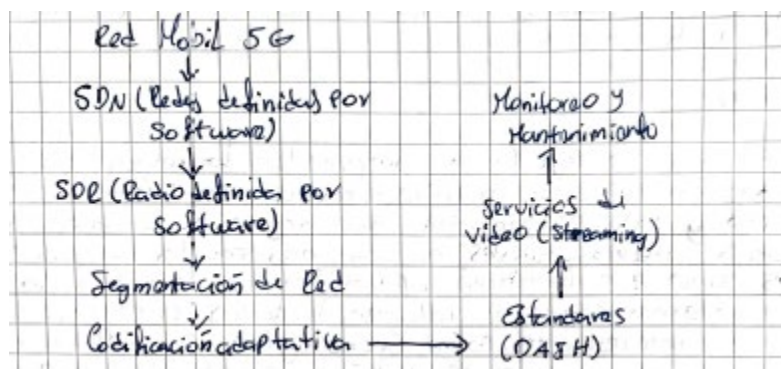 Red Mobil 5G
SDN (Redes definidas por
Software)
SDR (Radio definida por
Software)
Segmentación de Red
Codificación adaptativa
Estandares
(DASH)
Servicios de
video (Streaming)
Monitoreo y
Mantenimiento